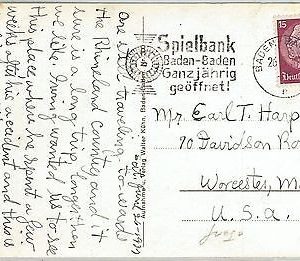 One is still traveling to-wards
the Rhineland country and it
sure is a long trip, longer than
we like. Irving wanted us to see
this place where he spent a few
weeks after his accident and this is
Aufnahme u. Verlag Walter Köhn, Baden
Spielbank
Baden-Baden
Ganzjährig
geöffnet!
BADEN
26
15
Deutsch
Mr. Earl T. Harp
70 Davidson Ro
Worcester, M
U. S. A.